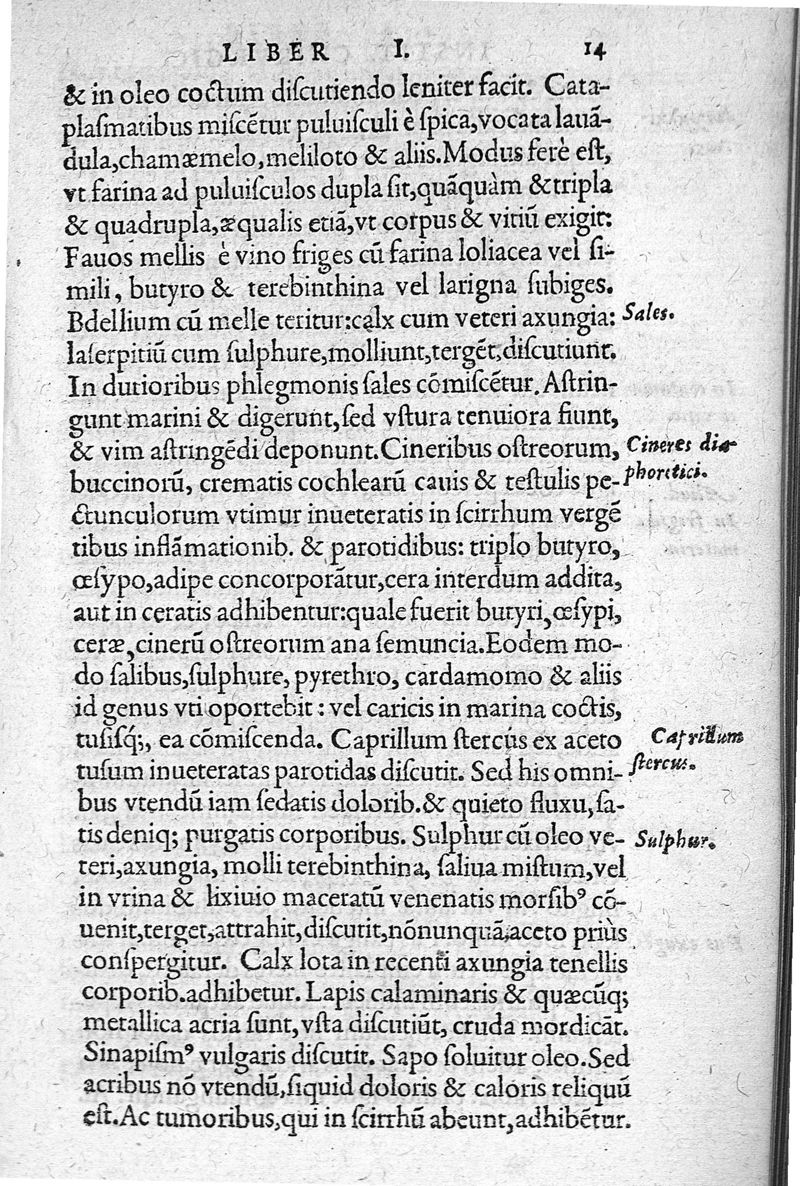 LIBER I. 14
& in oleo coctum diſcutiendo leniter facit. Cata-
plaſmatibus miſcētur puluiſculi è ſpica, vocata lauā-
dula, chamæmelo, meliloto & aliis. Modus ferè eſt,
vt farina ad puluiſculos dupla ſit, quāquàm & tripla
& quadrupla, æqualis etiā, vt corpus & vitiū exigit:
Fauos mellis è vino friges cū farina loliacea vel ſi-
mili, butyro & terebinthina vel larigna ſubiges.
Bdellium cū melle teritur: calx cum veteri axungia:
Sales.
laſerpitiū cum ſulphure, molliunt, tergēt, diſcutiunt.
In durioribus phlegmonis ſales cōmiſcētur. Aſtrin-
gunt marini & digerunt, ſed vſtura tenuiora fiunt,
& vim aſtringēdi deponunt. Cineribus oſtreorum,
Cineres dia-
phoretici.
buccinorū, crematis cochlearū cauis & teſtulis pe-
ctunculorum vtimur inueteratis in ſcirrhum vergē
tibus inflāmationib. & parotidibus: triplo butyro,
œſypo, adipe concorporātur, cera interdum addita,
aut in ceratis adhibentur: quale fuerit butyri, œſypi,
ceræ, cinerū oſtreorum ana ſemuncia. Eodem mo-
do ſalibus, ſulphure, pyrethro, cardamomo & aliis
id genus vti oportebit : vel caricis in marina coctis,
tuſiſq;, ea cōmiſcenda. Caprillum ſtercus ex aceto
Caprillum
ſtercus.
tuſum inueteratas parotidas diſcutit. Sed his omni-
bus vtendū iam ſedatis dolorib. & quieto fluxu, ſa-
tis deniq; purgatis corporibus. Sulphur cū oleo ve-
Sulphur.
teri, axungia, molli terebinthina, ſaliua miſtum, vel
in vrina & lixiuio maceratū venenatis morſibꝰ cō-
uenit, terget, attrahit, diſcutit, nōnunquā aceto priùs
conſpergitur. Calx lota in recenti axungia tenellis
corporib. adhibetur. Lapis calaminaris & quæcūq;
metallica acria ſunt, vſta diſcutiūt, cruda mordicāt.
Sinapiſmꝰ vulgaris diſcutit. Sapo ſoluitur oleo. Sed
acribus nō vtendū, ſiquid doloris & caloris reliquū
eſt. Ac tumoribus, qui in ſcirrhū abeunt, adhibētur.